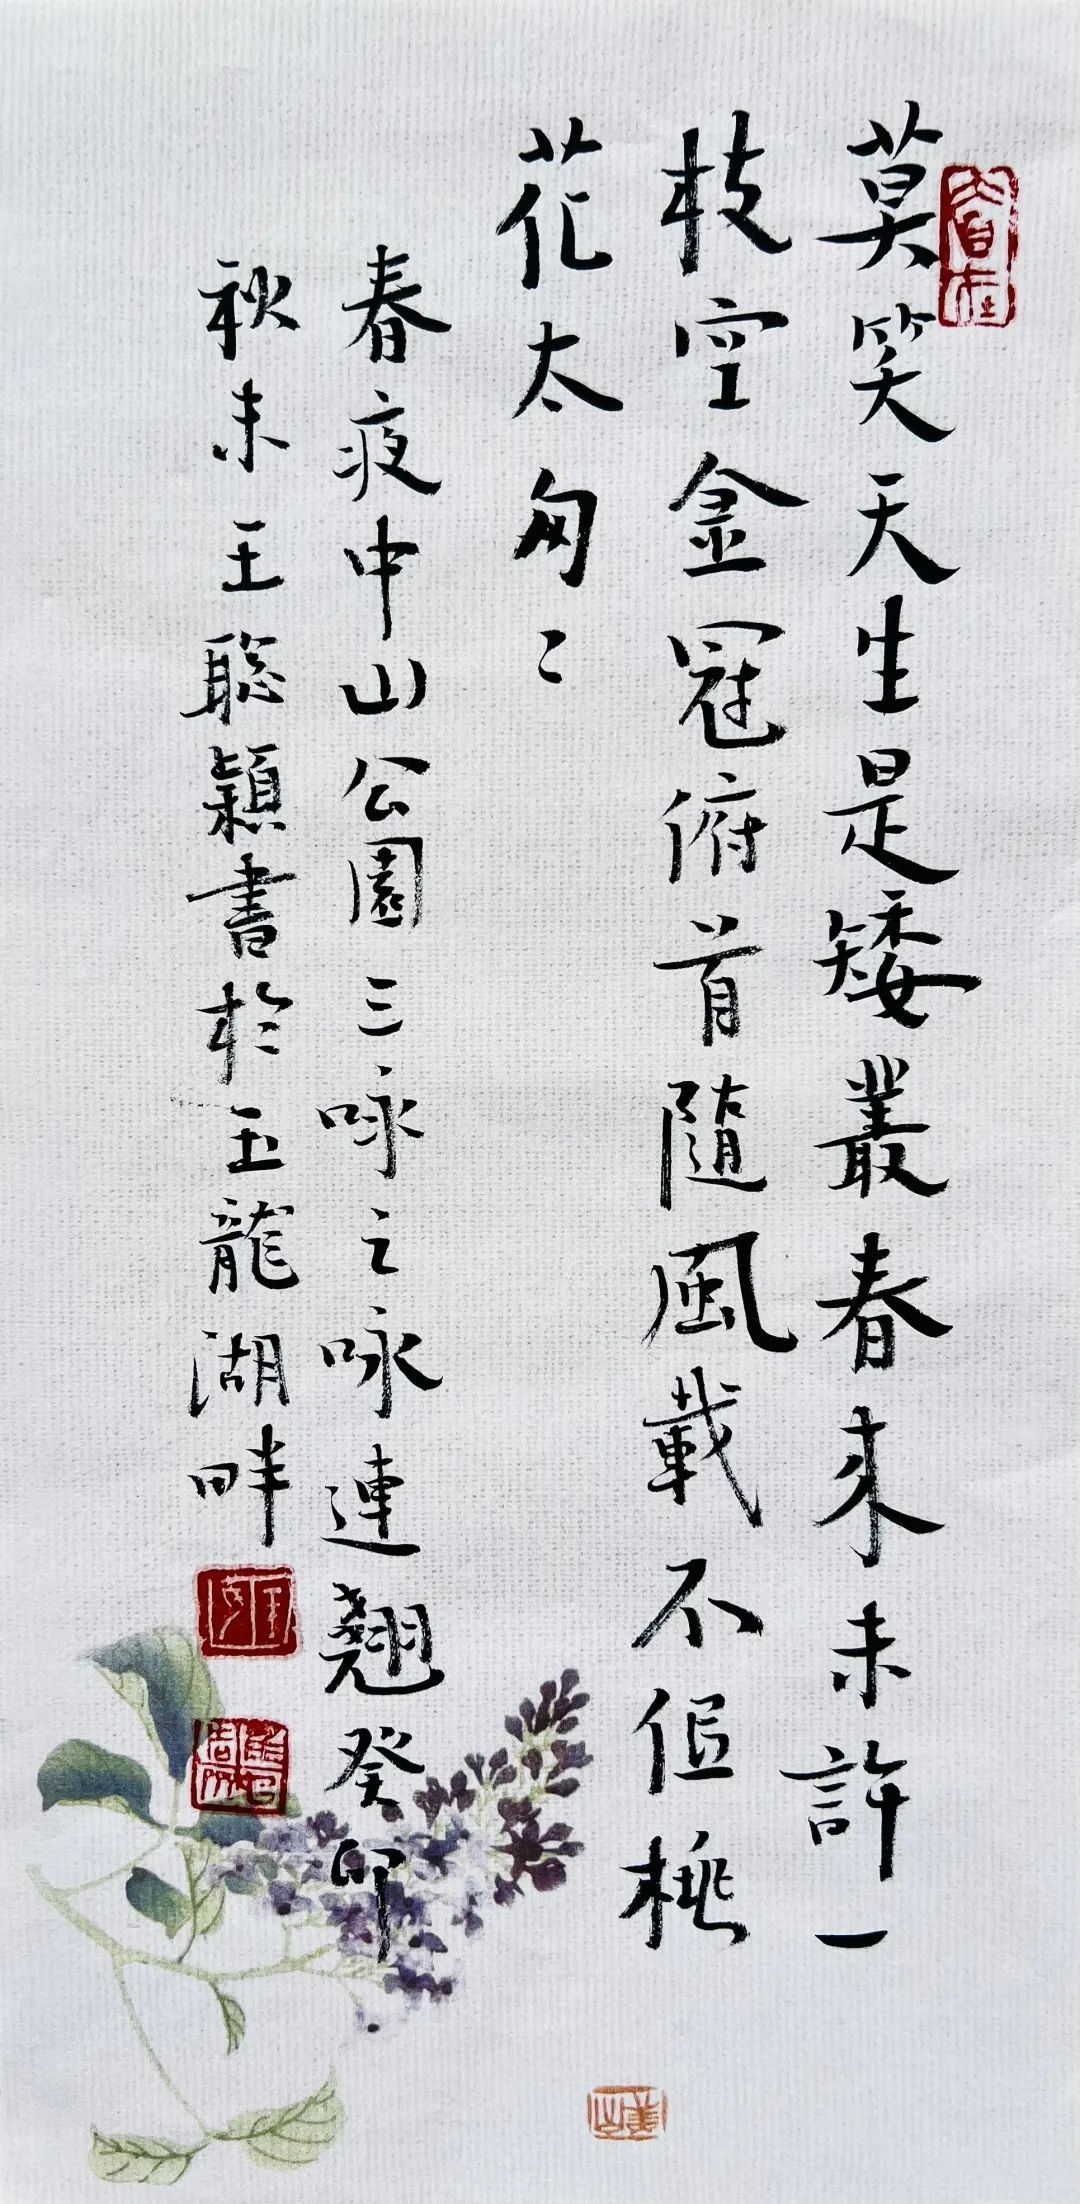 莫笑天生是矮叢春來未許一
枝空金冠俯首隨風載不伹桃
花太匆〻
春夜中山公園三咏之咏連翹癸卯
秋末王聪穎書於玉龍湖畔